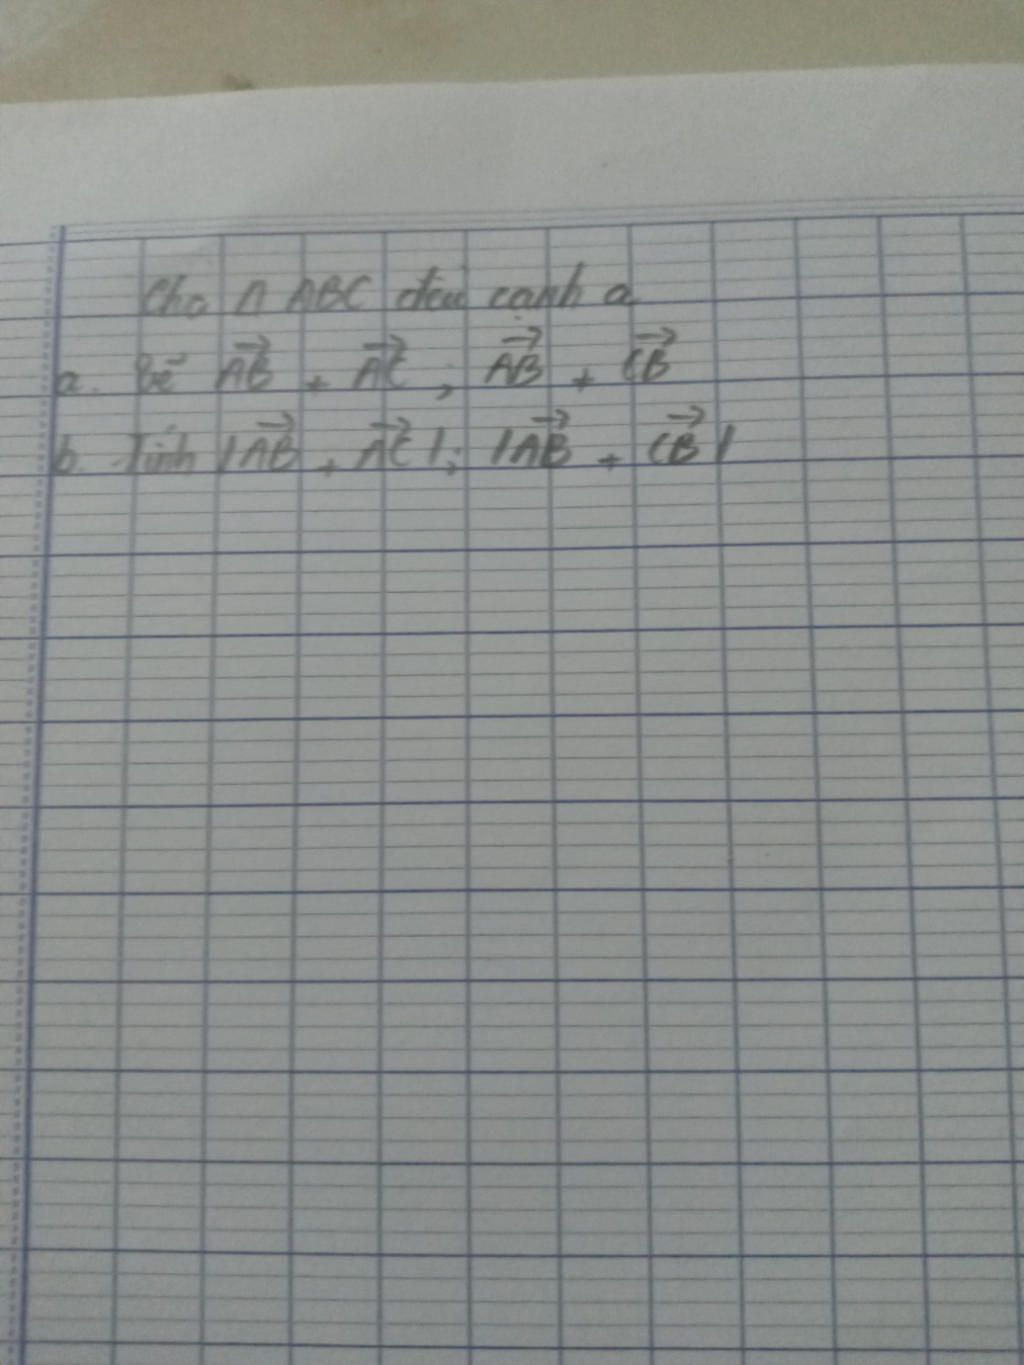 Cho Δ ABC đều cạnh a
a. Vẽ $\overrightarrow{AB}$ + $\overrightarrow{AC}$ ; $\overrightarrow{AB}$ + $\overrightarrow{CB}$
b. Tính |$\overrightarrow{AB}$ + $\overrightarrow{AC}$|; |$\overrightarrow{AB}$ + $\overrightarrow{CB}$|